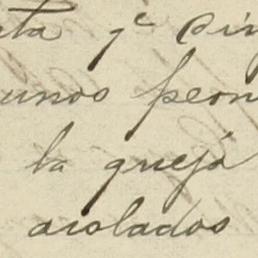 ta qe sin
unos peon
la queja
aislados